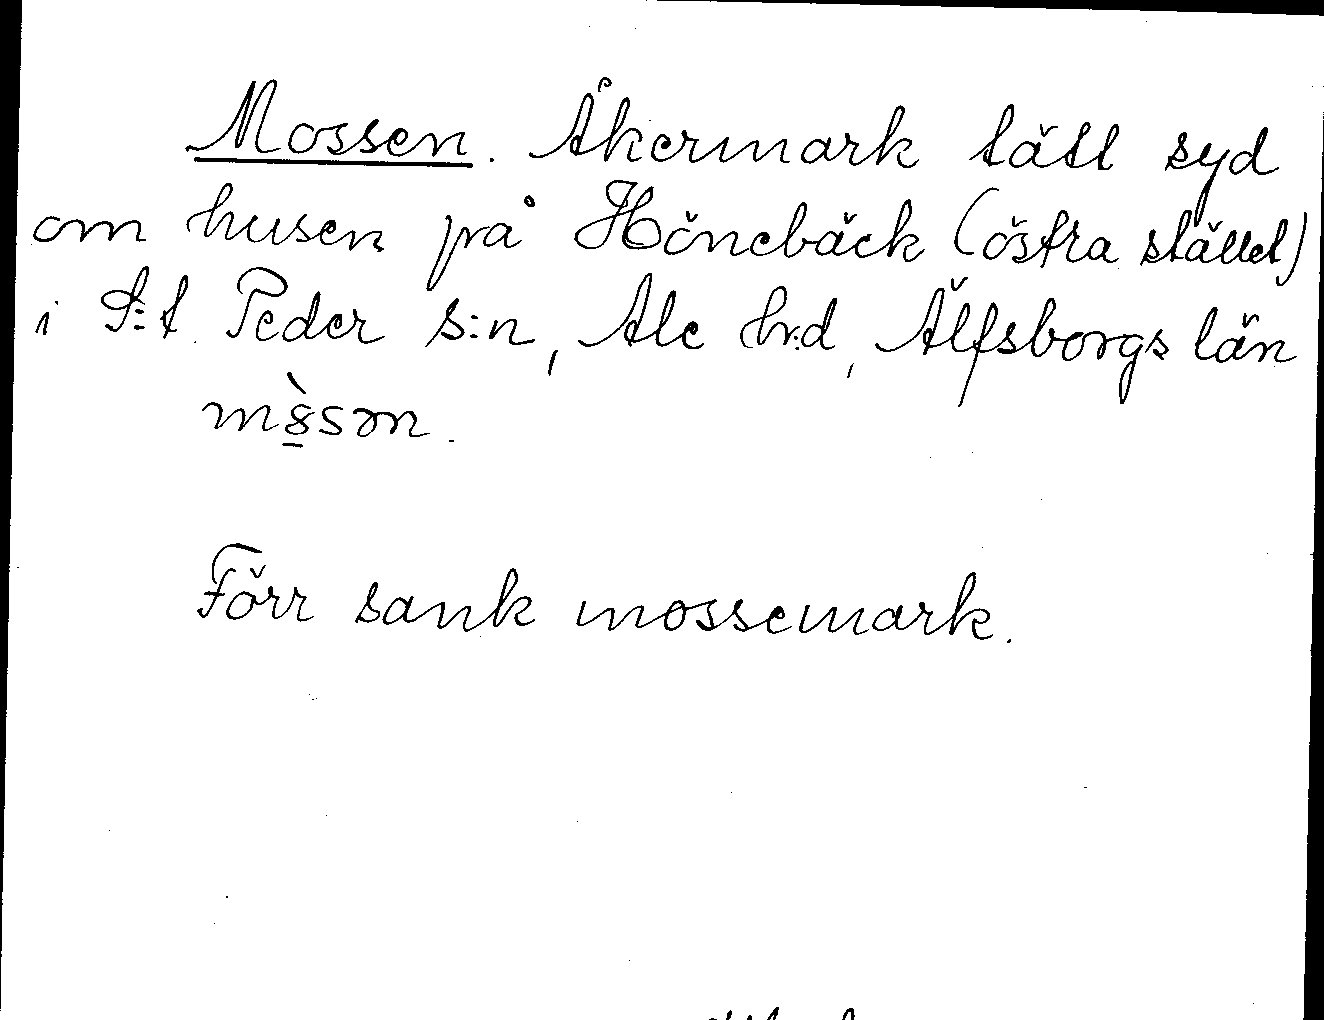 Mossen. Åkermark tätt syd
om husen på Hönebäck (östra stället)
i S:t Peder s:n, Ale hr:d, Älfsborgs län
Förr sank mossemark.